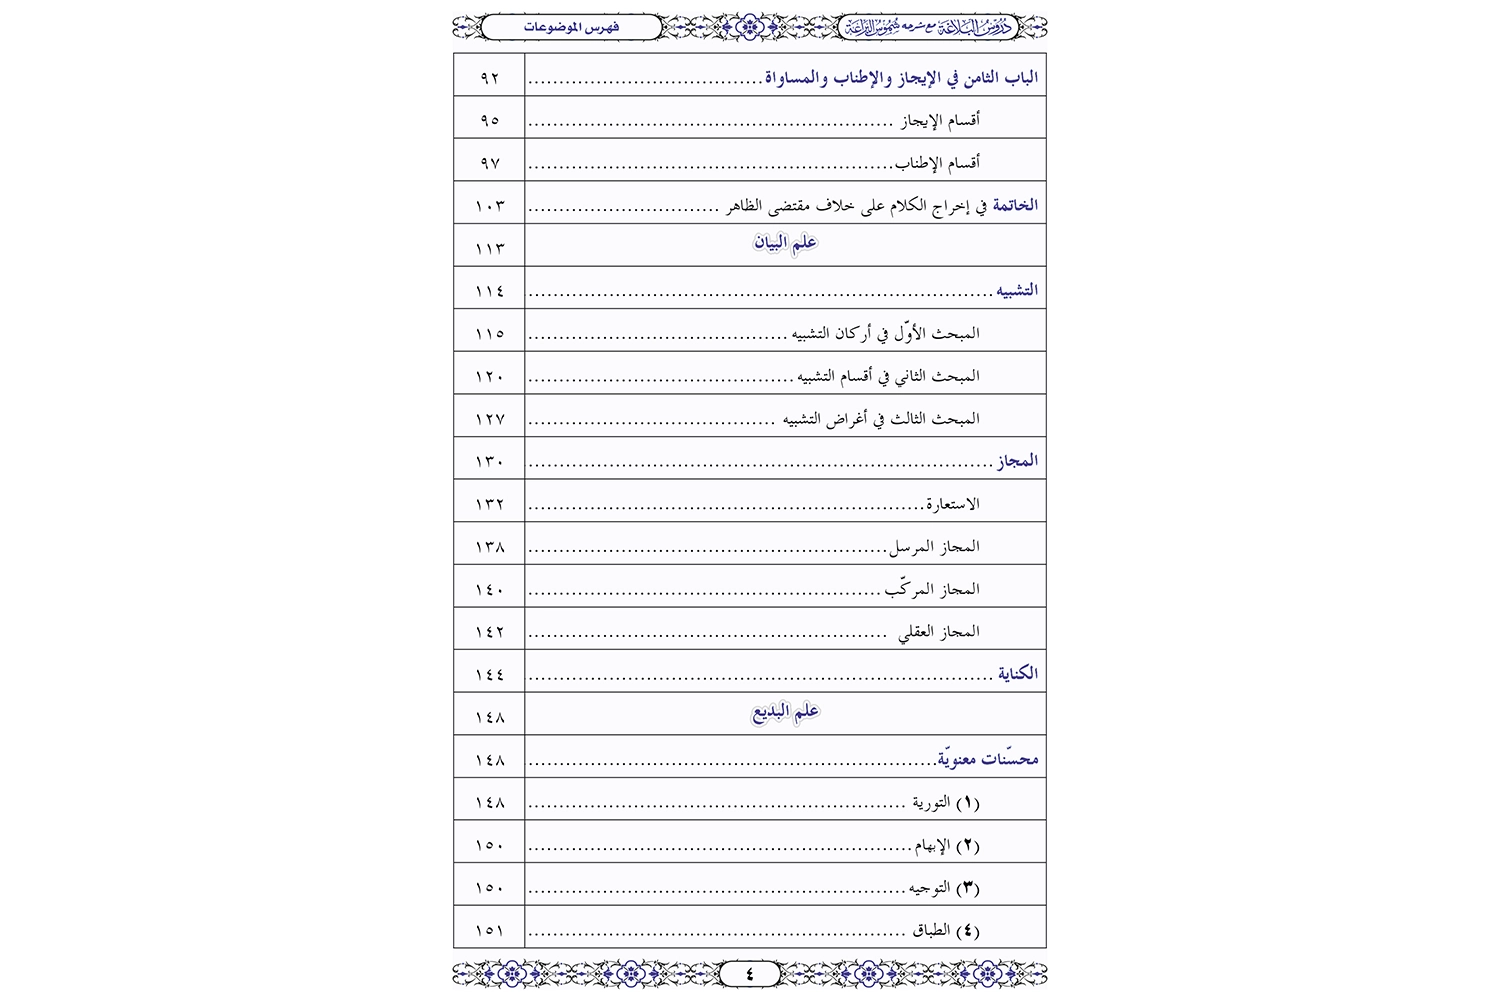 دروس البلاغة مع شرحه شموس البراعة
فهرس الموضوعات
الباب الثامن في الإيجاز والإطناب والمساواة ٩٢
أقسام الإيجاز ٩٥
أقسام الإطناب ٩٧
الخاتمة في إخراج الكلام على خلاف مقتضى الظاهر ١٠٣
علم البيان ١١٣
التشبيه ١١٤
المبحث الأوّل في أركان التشبيه ١١٥
المبحث الثاني في أقسام التشبيه ١٢٠
المبحث الثالث في أغراض التشبيه ١٢٧
المجاز ١٣٠
الاستعارة ١٣٢
المجاز المرسل ١٣٨
المجاز المركّب ١٤٠
المجاز العقلي ١٤٢
الكناية ١٤٤
علم البديع ١٤٨
محسّنات معنويّة ١٤٨
(١) التورية ١٤٨
(٢) الإبهام ١٥٠
(٣) التوجيه ١٥٠
(٤) الطباق ١٥١
٤